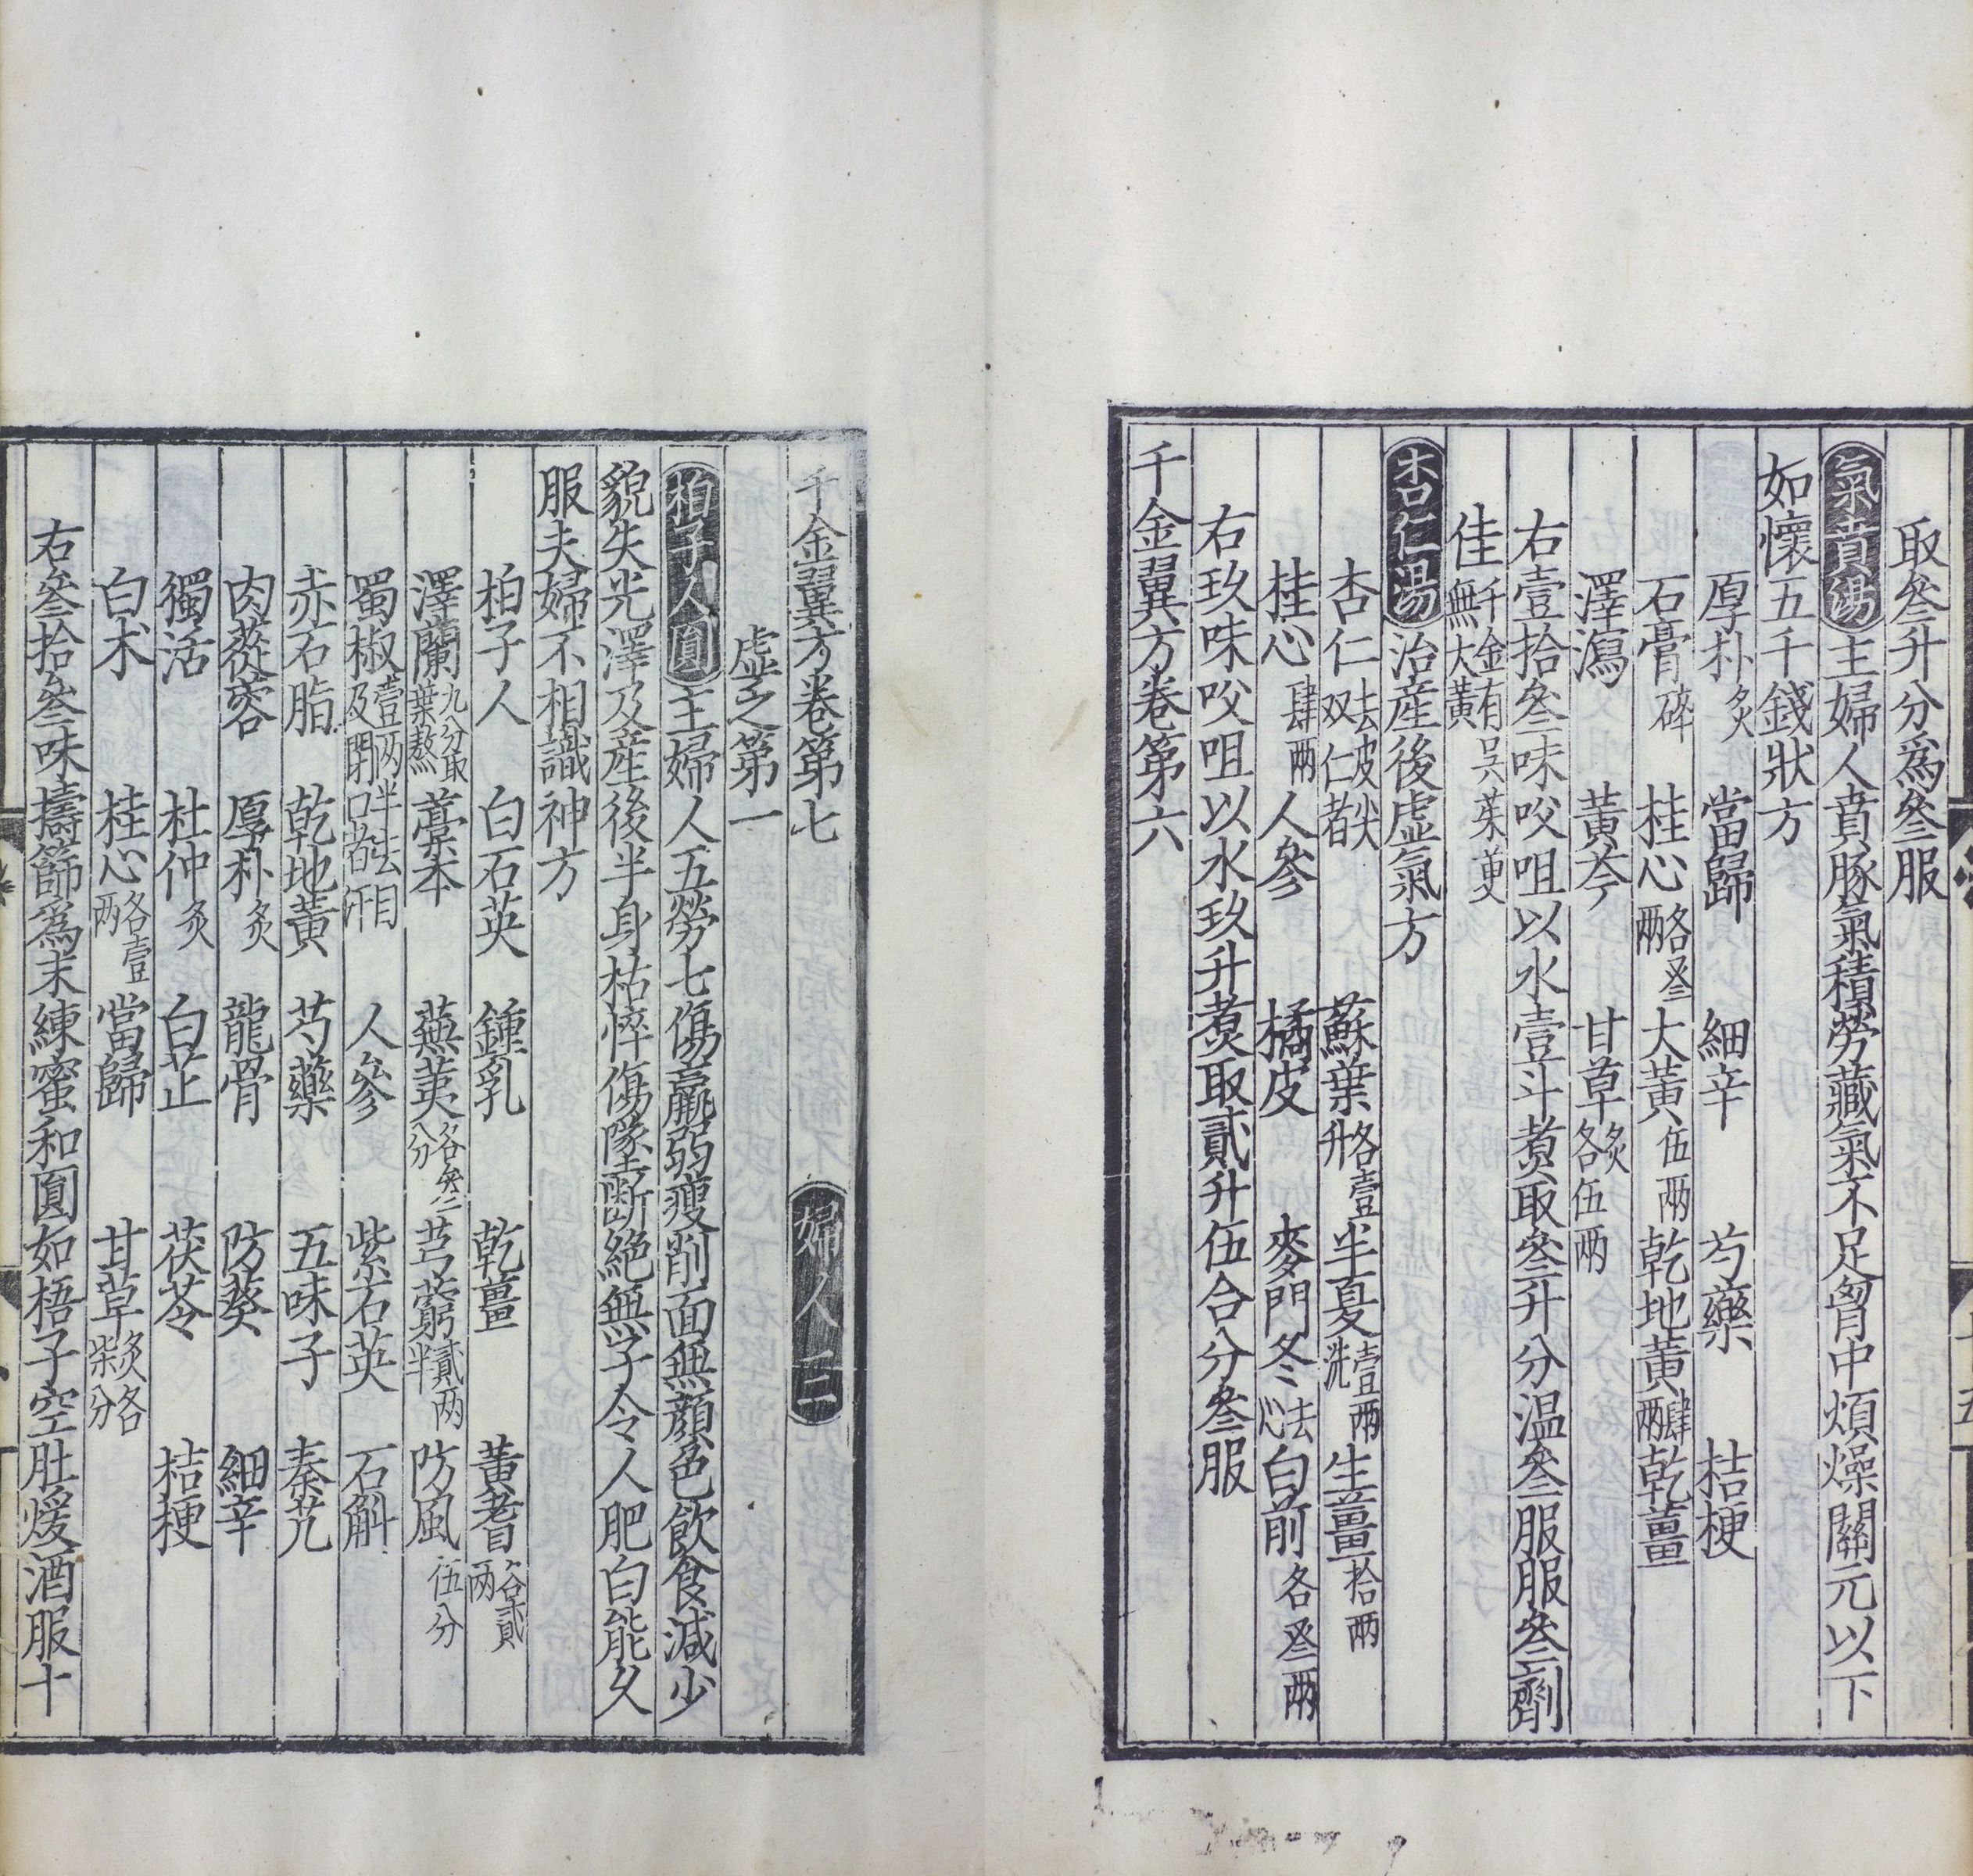 取叁升分爲叁服
氣賁湯主婦人賁豚氣積勞藏氣不足胷中煩燥關元以下
如懷五千錢狀方
厚朴炙 當歸 細辛 芍藥 桔梗
石膏碎 桂心各叁兩 大黃伍兩 乾地黃肆兩 乾薑
澤瀉 黃芩 甘草炙各伍兩
右壹拾叁味㕮咀以水壹斗煑取叁升分温叁服服叁劑
佳千金有吳茱萸無大黃
杏仁湯治産後虛氣方
杏仁去皮尖双仁者 蘇葉各壹升 半夏壹兩洗 生薑拾兩
桂心肆兩 人參 橘皮 麥門冬去心 白前各叁兩
右玖味㕮咀以水玖升煑取貳升伍合分叁服
千金翼方卷第六
千金翼方卷第七 婦人三
虛乏第一
柏子人圓主婦人五勞七傷羸弱瘦削面無顔色飲食減少
貌失光澤及産後半身枯悴傷墜斷絶無子令人肥白能久
服夫婦不相識神方
柏子人 白石英 鍾乳 乾薑 黃耆各貳兩
澤蘭九分取葉熬 藁本 蕪荑各叁分 芎藭貳兩半 防風伍分
蜀椒壹兩半去目及閉口者汗 人參 紫石英 石斛
赤石脂 乾地黃 芍藥 五味子 秦艽
肉蓯蓉 厚朴炙 龍骨 防葵 細辛
獨活 杜仲炙 白芷 茯苓 桔梗
白朮 桂心各壹兩 當歸 甘草炙各柒分
右叁拾叁味擣篩爲末練蜜和圓如梧子空肚煖酒服十